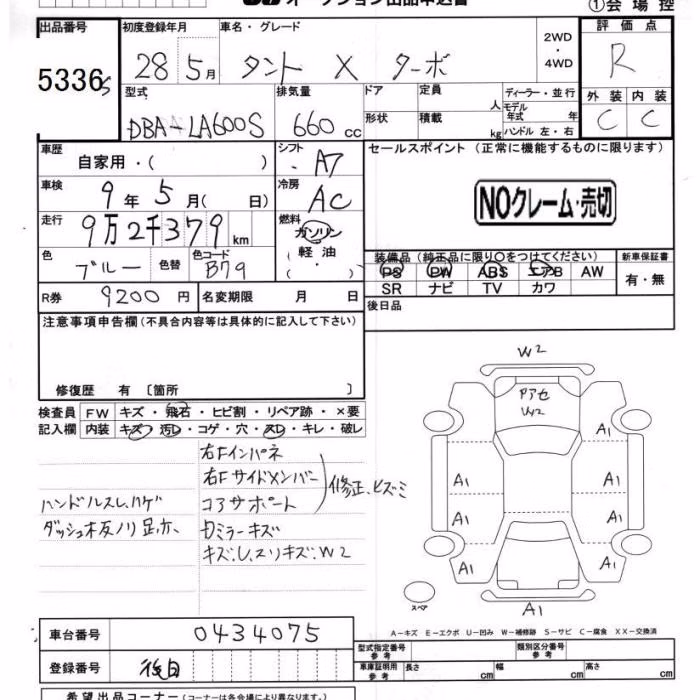 オークション出品申込書
①会場控
出品番号 初度登録年月 車名・グレード 2WD・4WD 評価点
5336 28 5月 タント X ターボ R
型式 排気量 ドア 定員 人 ディーラー・並行 外装 内装
DBA-LA600S 660 cc 形状 積載 kg モデル年式 年 ハンドル 左・右 C C
車歴 自家用・( ) シフト A7 セールスポイント (正常に機能するものに限ります)
車検 9年 5月( 日) 冷房 AC NOクレーム・売切
走行 9万2千379 km 燃料 ガソリン
軽油
( ・ )
色 ブルー 色替 色コード B79 装備品 (純正品に限り〇をつけてください) 新車保証書
PS PW ABS エアB AW 有・無
SR ナビ TV カワ
R券 9200 円 名変期限 月 日 後日品
注意事項申告欄 (不具合内容等は具体的に記入して下さい)
修復歴 有 〔箇所 〕
検査員 FW キズ・飛石・ヒビ割・リペア跡・×要
記入欄 内装 キズ・汚レ・コゲ・穴・スレ・キレ・破レ
右Fインパネ
右Fサイドメンバー
コアサポート
修正、ヒズミ
ハンドルスレ、ハゲ
ダッシュ板ノリ足赤
ミラーキズ
キズ、レ、スリキズ、W2
W2
アアセ
W2
A1
A1
A1
A1
A1
A1
A1
A1
A1
スペア
A1
A-キズ E-エクボ U-凹み W-補修跡 S-サビ C-腐食 XX-交換済
車台番号 0434075 型式指定番号 参考 類別区分番号 参考
登録番号 後日 車庫証明用 参考 長さ cm 幅 cm 高さ cm
希望出品コーナー (コーナーは各会場により異なります。)